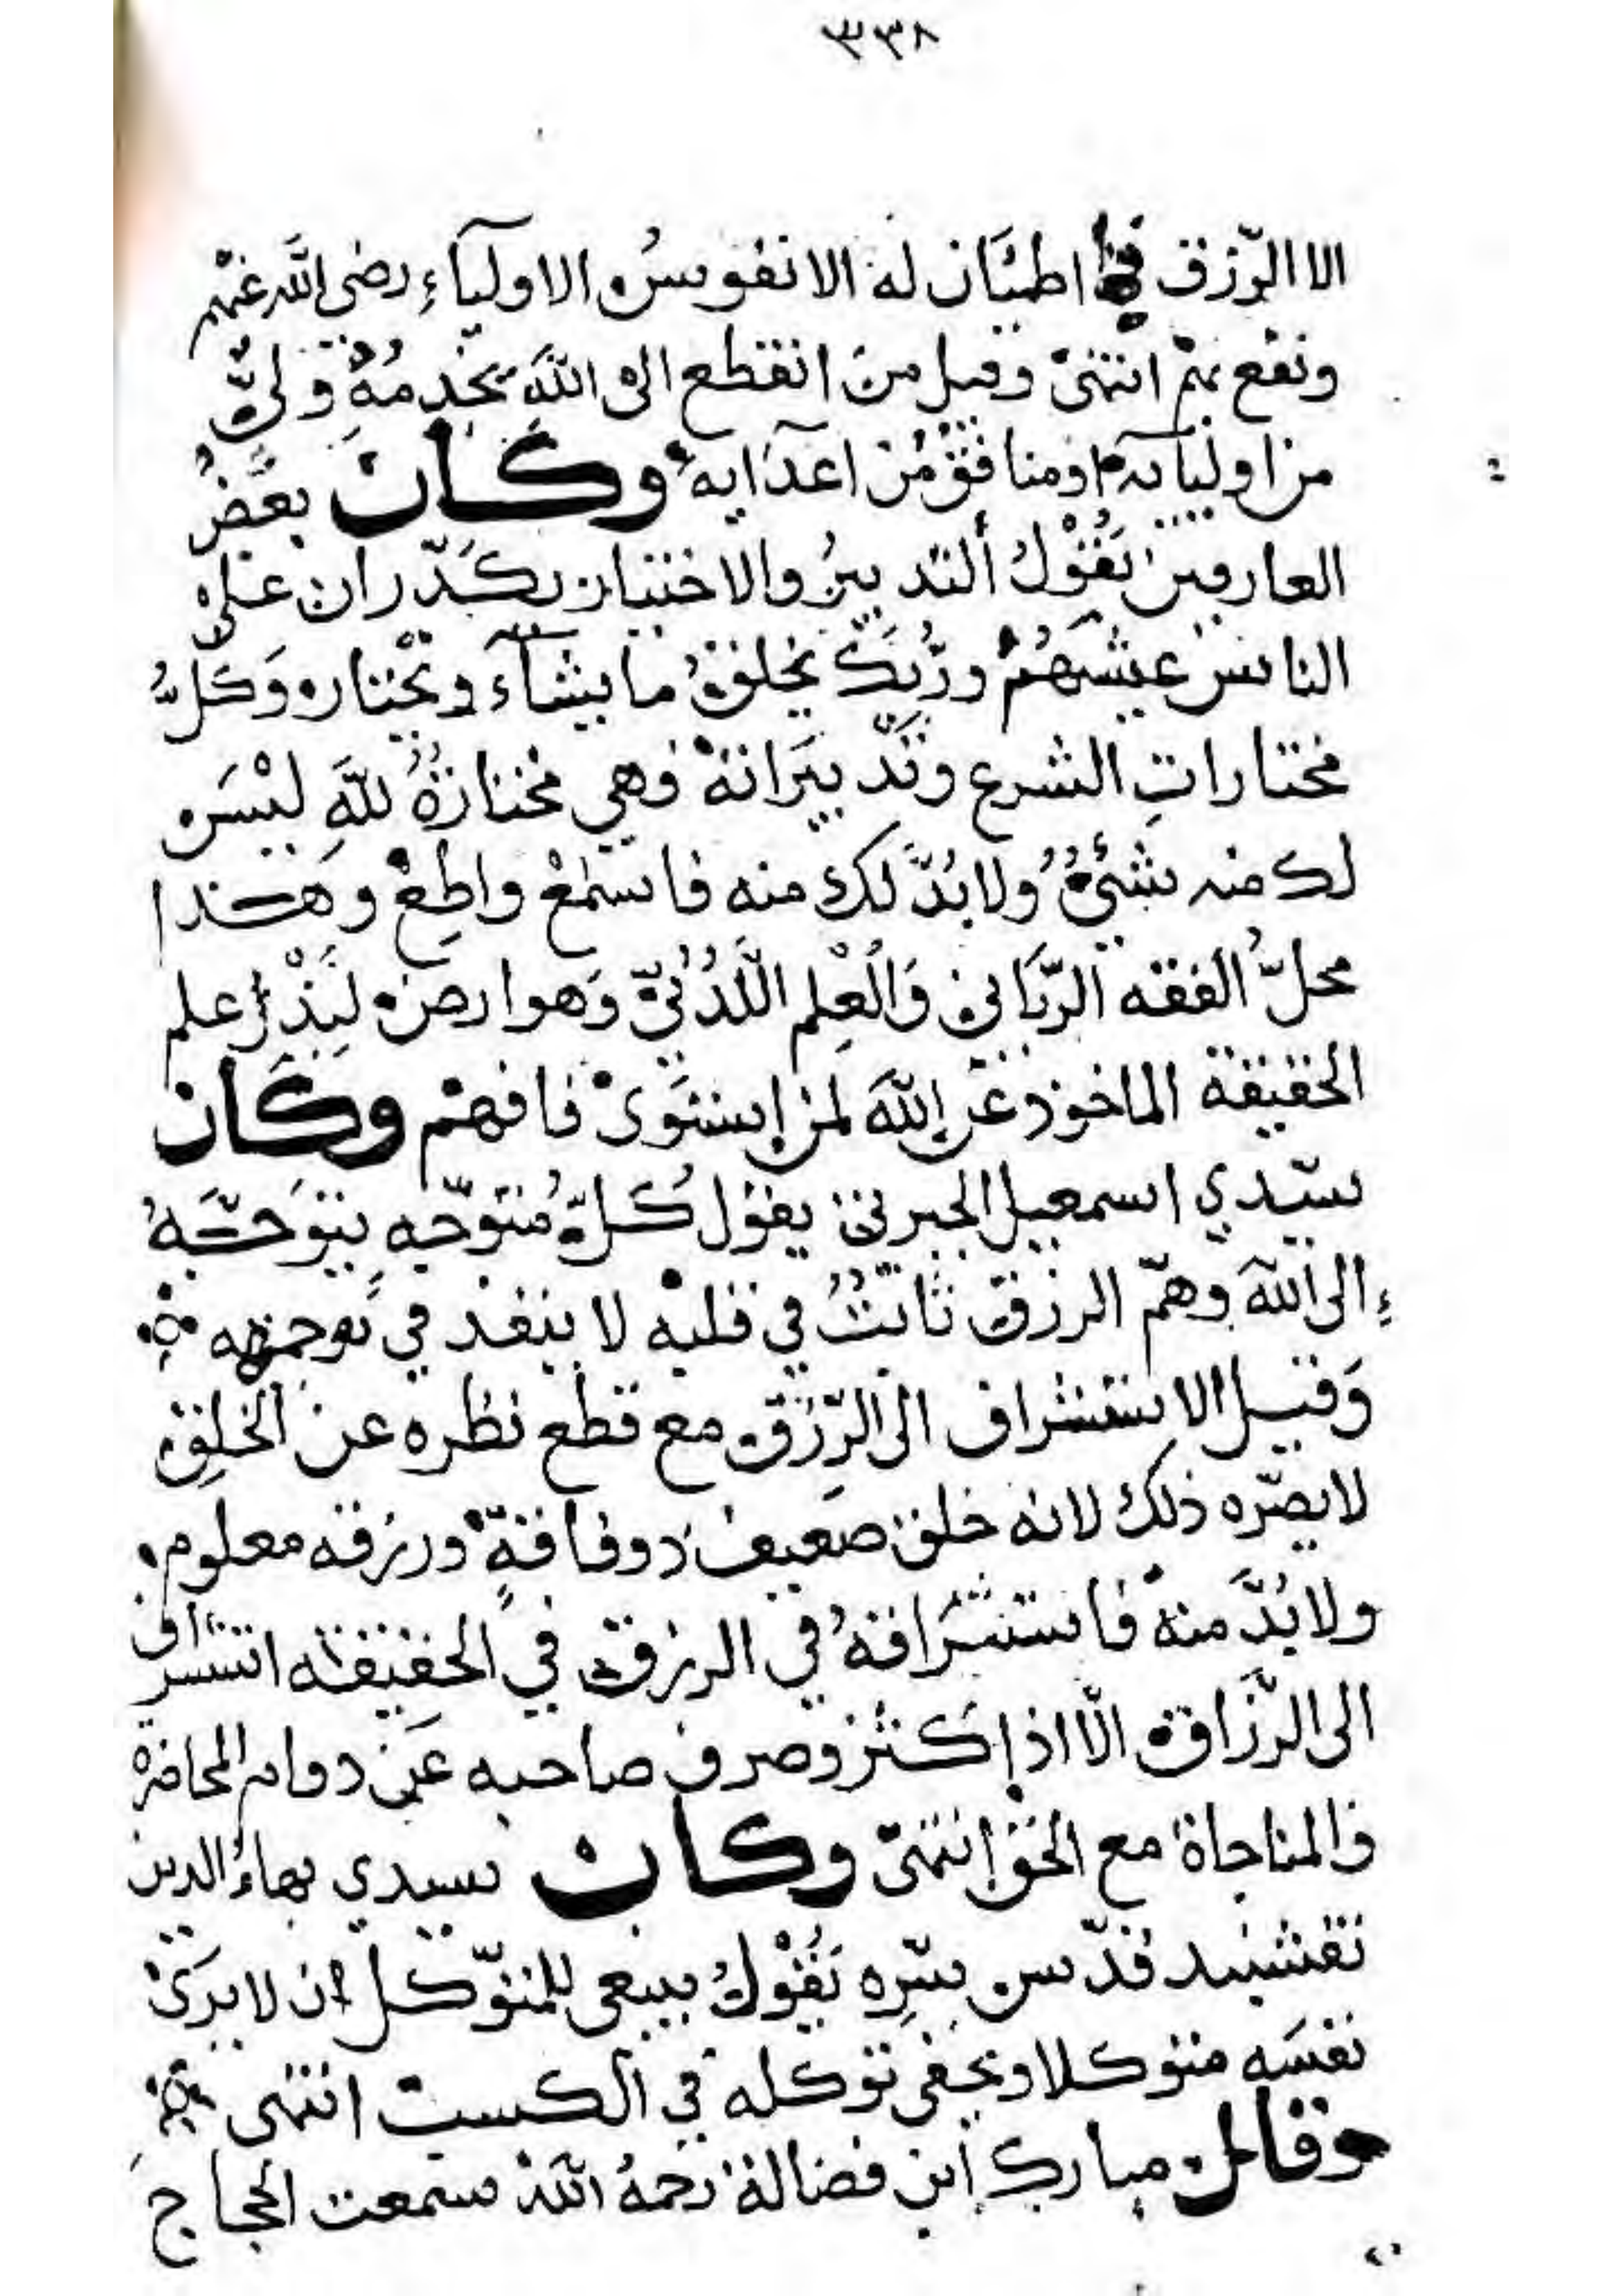 ٣٣٨
الا الرّزق فما اطمئان له الا نفوسُ الاولياءِ رضي اللّه عنْهم
ونفع بهمْ انتهىْ وقيل منَ انقطع الى اللّهَ يخدِمُهْ وليٌّ
من اوليائه او منافقٌ مْن اعدَايه وكان بعْضُ
العارفين يَقُوْلُ ألتدبيرُ والاختيار يكَدّران على
الناس عيشَهُمْ وربُّكَ يخلقُ ما يشآءَ ويخْتار وَكلُّ
مختاراتِ الشرع وتدْبيَراتهْ فهي مختارةٌ للّهِ ليْسَ
لك منه شئٌ ولا بُدَّ لك منه فاسمْعْ واطِعْ وهَذا
محلُّ الفقه الرّبّاني وَالْعِلمِ اللّدُنّيّ وَهو ارض لبَذْر علم
الحقيقة الماخوذ عَن اللّهَ لمن إستَوىْ فافهمْ وكَان
سيّدي اسمعيل الجبرتي يقول كُلّ مُتوجّهٍ يتوَجّهُ
إلى اللّهَ وهمّ الرزق ثابتٌ في قلبهْ لا ينفذ في توجهه
وَقيل الاستشراف الى الرّزق مع قطع نظره عن الخلقِ
لا يضرّه ذلك لانه خلق ضعيف ذو فاقةٍ ورزقه معلوم
ولا بُدَّ منهْ فاستشرَافهُ في الرزق في الحقيقه استشراف
الى الرّزَاق الّا اذا كثر وصرف صاحبه عَن دوام المحاضرة
والمناجاة مع الحقّ انتهىْ وكان سيدي بهاءُ الدين
نقشبند قدّس سّرِه يَقُوْلُ ينبغي للمتوّكل ان لا يرَىْ
نفسَه متوكلا ويخفي توكله في الكسب انتهى
وقال مبارك ابن فضالة رحمهُ اللّهْ سمعت الحجاجَ